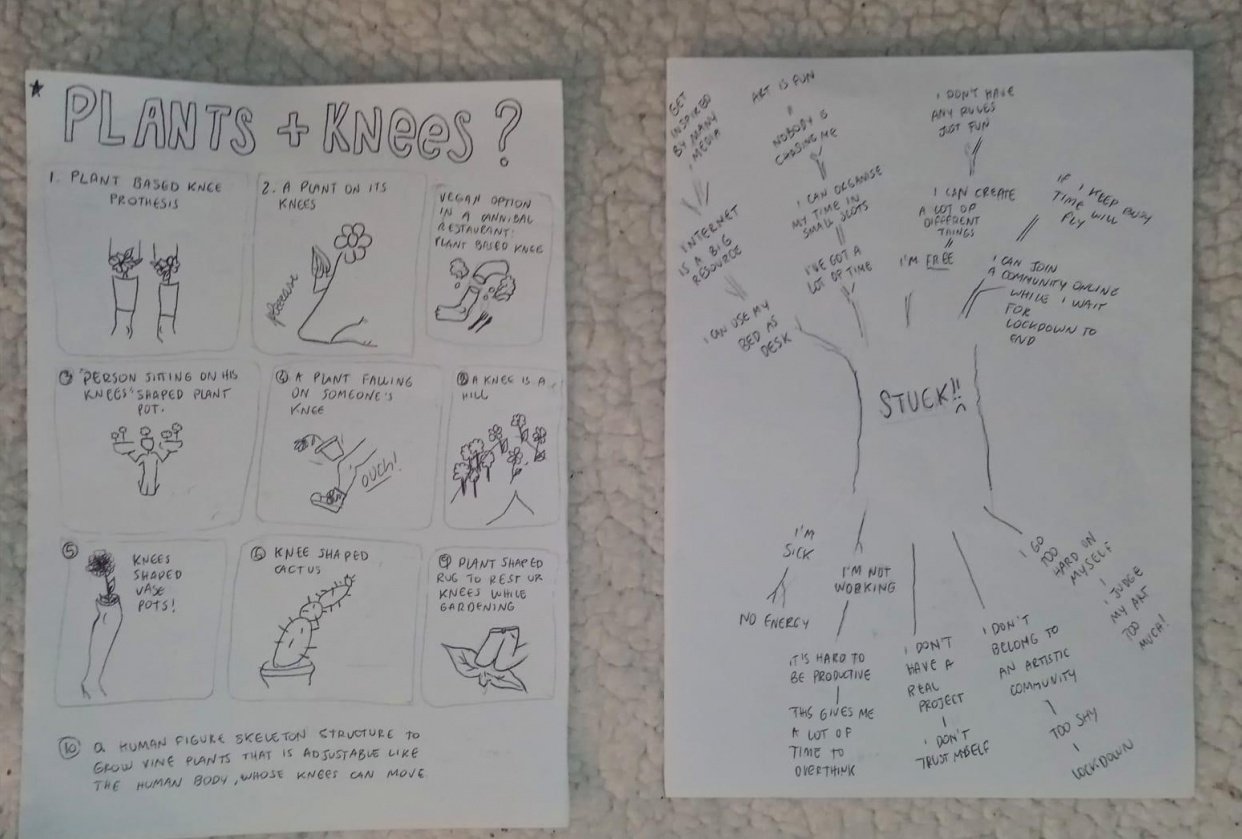 PLANTS + KNEES ?
1. PLANT BASED KNEE
PROTHESIS
2. A PLANT ON ITS
KNEES
please
VEGAN OPTION
IN A CANNIBAL
RESTAURANT:
PLANT BASED KNEE
"PERSON SITTING ON HIS
KNEES" SHAPED PLANT
POT.
A PLANT FALLING
ON SOMEONE'S
KNEE
OUCH!
A KNEE IS A
HILL
5
KNEES
SHAPED
VASE
POTS!
6 KNEE SHAPED
CACTUS
9 PLANT SHAPED
RUG TO REST UR
KNEES WHILE
GARDENING
10 a HUMAN FIGURE SKELETON STRUCTURE TO
GROW VINE PLANTS THAT IS ADJUSTABLE LIKE
THE HUMAN BODY, WHOSE KNEES CAN MOVE.
GET
INSPIRED
BY MANY
MEDIA
INTERNET
IS A BIG
RESOURCE
I CAN USE MY
BED AS
DESK
ART IS FUN
NOBODY IS
CHASING ME
I CAN ORGANISE
MY TIME IN
SMALL SLOTS
I'VE GOT A
LOT OF TIME
I DON'T HAVE
ANY RULES
JUST FUN
I CAN CREATE
A LOT OF
DIFFERENT
THINGS
I'M FREE
IF I KEEP BUSY
TIME WILL
FLY
I CAN JOIN
A COMMUNITY ONLINE
WHILE I WAIT
FOR
LOCKDOWN TO
END
STUCK!!
I'M
SICK
NO ENERGY
I'M NOT
WORKING
IT'S HARD TO
BE PRODUCTIVE
THIS GIVES ME
A LOT OF
TIME TO
OVERTHINK
I DON'T
HAVE A
REAL
PROJECT
I DON'T
TRUST MYSELF
I DON'T
BELONG TO
AN ARTISTIC
COMMUNITY
TOO SHY
LOCKDOWN
I GO
TOO
HARD ON
MYSELF
I JUDGE
MY ART
TOO
MUCH!